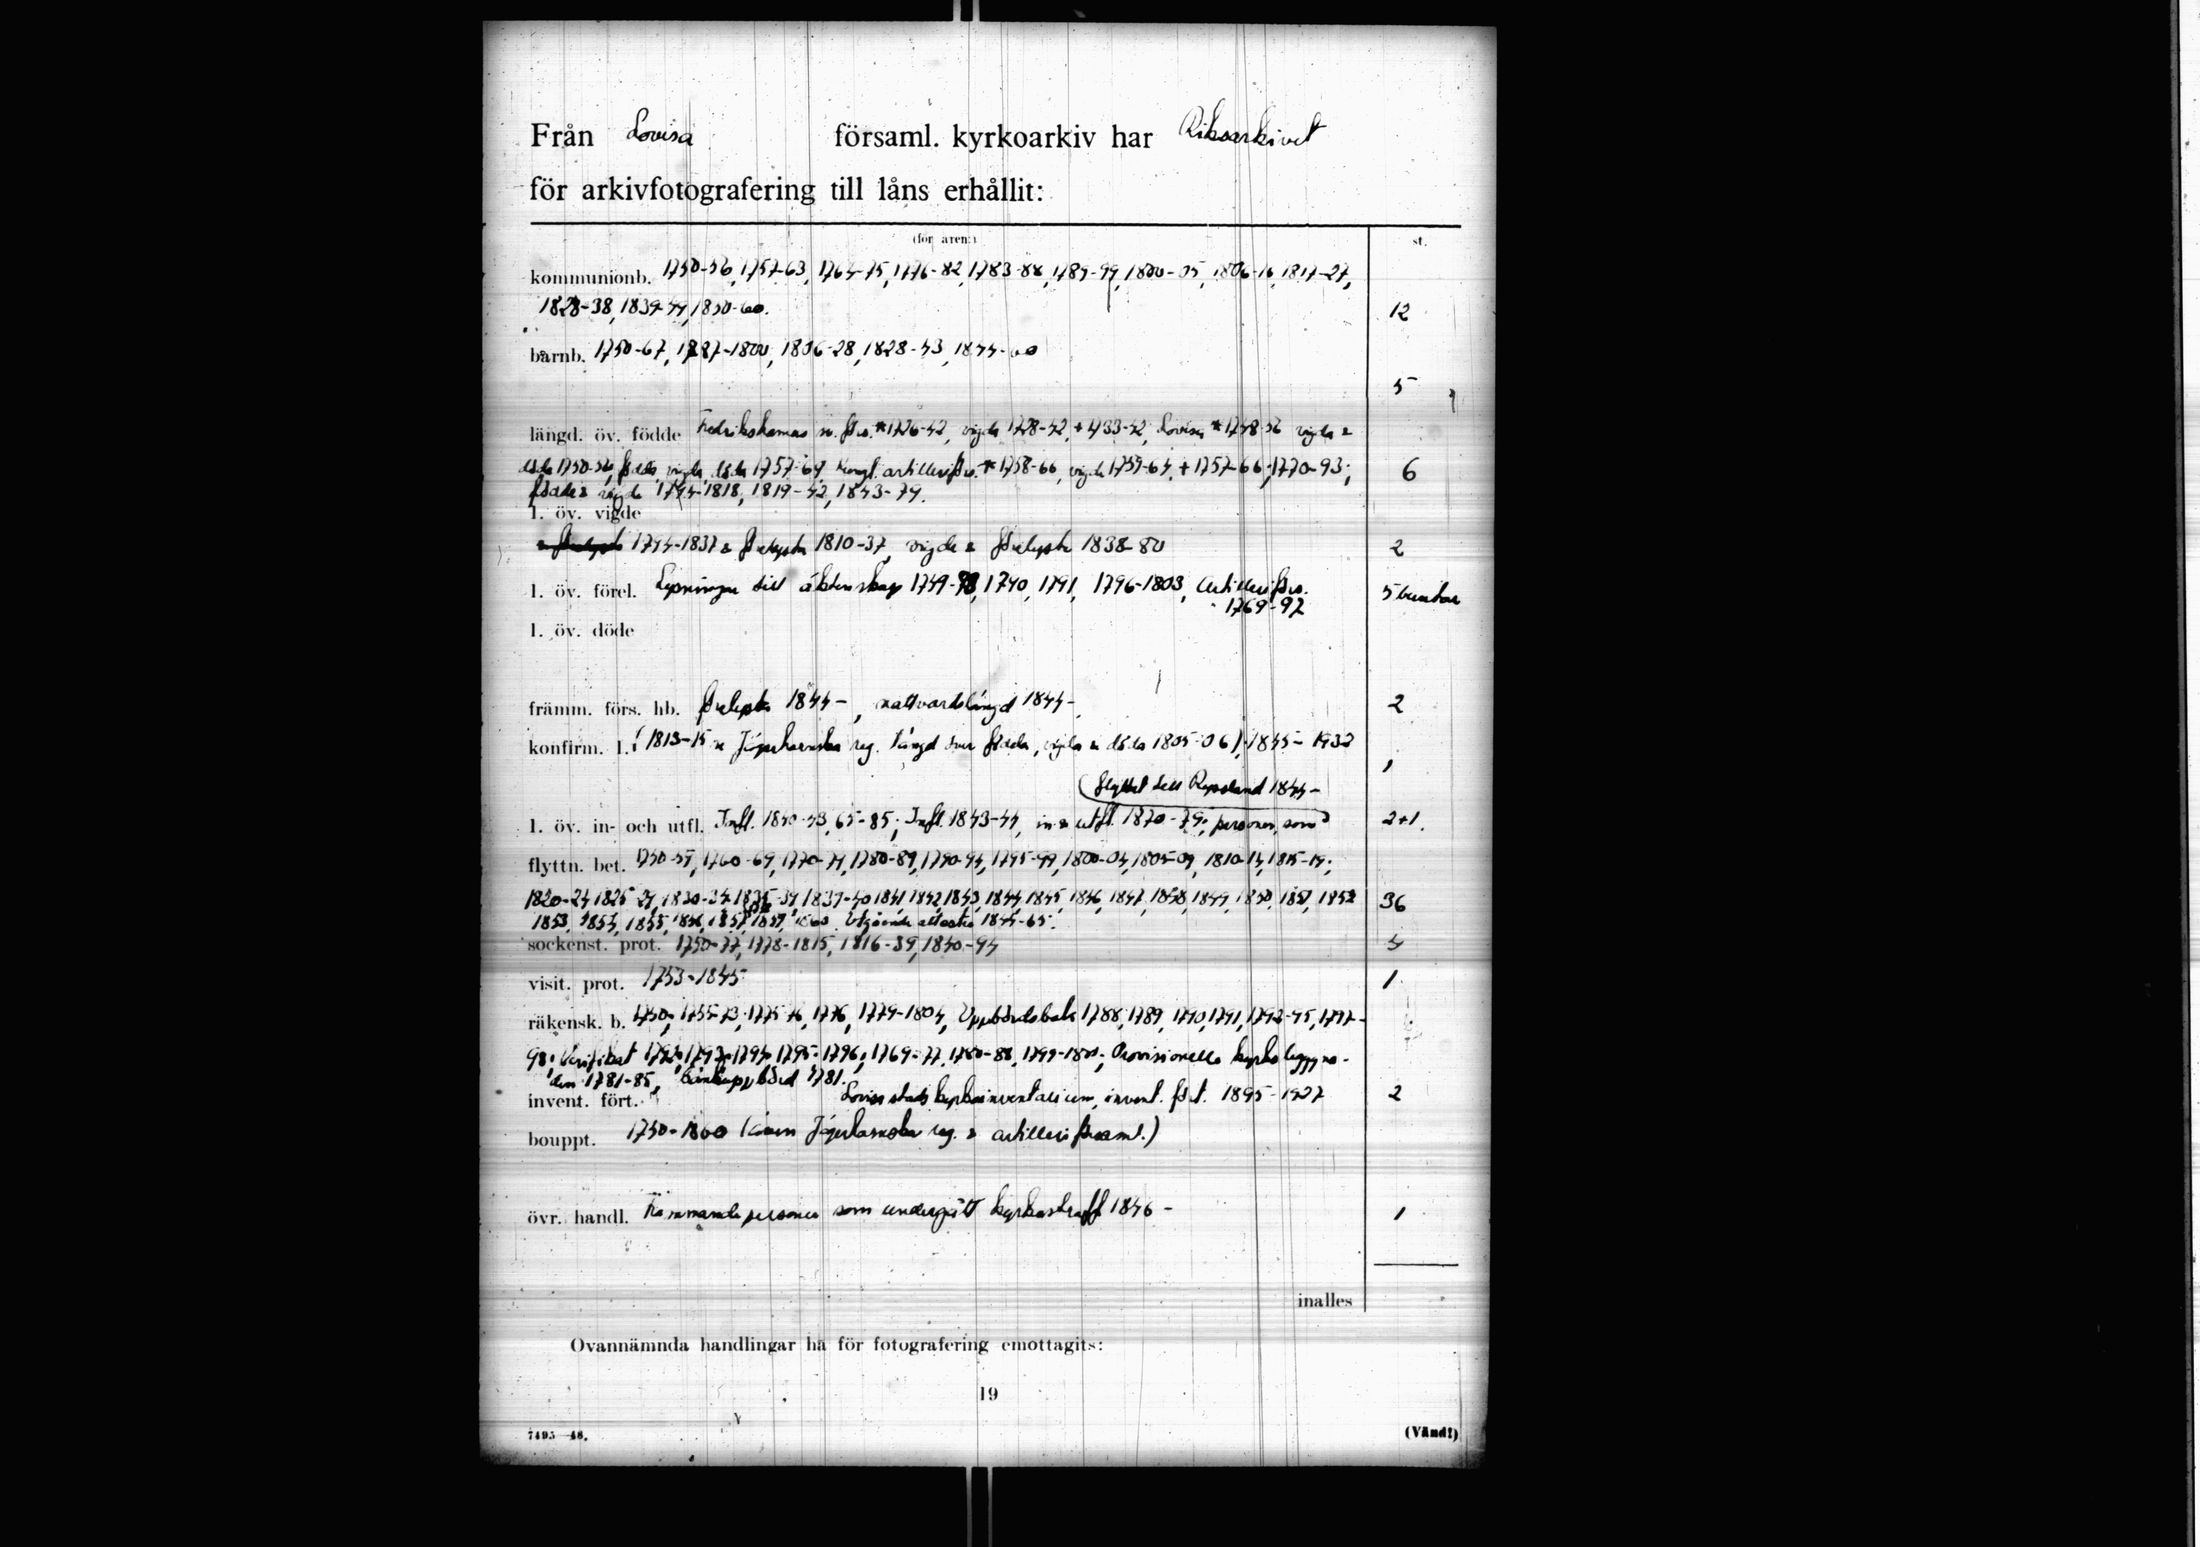 Från Lovisa församl. kyrkoarkiv har Riksarkivet
för arkivfotografering till låns erhållit:
(för åren:) st.
kommunionb. 1750-56, 1757-63, 1764-75, 1776-82, 1783-88, 1789-99, 1800-05, 1806-16, 1817-27,
1828-38, 1839-49, 1850-60. 12
barnb. 1750-67, 1787-1800, 1806-28, 1828-43, 1844-60
5
längd. öv. födde Fredrikshamns n. förs. *1726-42, vigda 1728-42, +1733-42, Lovisa *1748-56 vigda &
döda 1750-56, födda, vigda, döda 1757-69, Kungl. artilleriförs. *1758-66, vigda 1759-64, +1757-66, 1770-93; 6
födda & vigda 1794-1818, 1819-42, 1843-79.
l. öv. vigde
1794-1837 & förlysta 1810-37, vigda & förlysta 1838-80 2
l. öv. förel. Lysningar till äktenskap 1749-98, 1790, 1791, 1796-1803, Artilleriförs. 5 buntar
1769-92
l. öv. döde
främm. förs. hb. förlysta 1844-, nattvardslängd 1844- 2
konfirm. l. (1813-15 & Jägerhornska reg. längd över födda, vigda & döda 1805-06), 1845-1932
1
flyttat till Ryssland 1844-
l. öv. in- och utfl. Infl. 1840-43, 65-85; Infl. 1843-44, in & utfl. 1870-79; personer, som 2+1.
flyttn. bet. 1750-59, 1760-69, 1770-79, 1780-89, 1790-94, 1795-99, 1800-04, 1805-09, 1810-14, 1815-19;
1820-24, 1825-29, 1830-34, 1835-39, 1839-40, 1841, 1842, 1843, 1844, 1845, 1846, 1847, 1848, 1849, 1850, 1851, 1852 36
1853, 1854, 1855, 1856, 1857, 1858, 1859, 1860. Utgående attester 1845-65.
sockenst. prot. 1750-77, 1778-1815, 1816-39, 1840-94 4
visit. prot. 1753-1845 1
räkensk. b. 1750, 1755-73, 1775-76, 1776, 1779-1804, Uppbördsbok 1788, 1789, 1790, 1791, 1792-95, 1797-
98; Verifikat 1792, 1793, 1794, 1795, 1796; 1769-77, 1780-88, 1799-1801; Provisionella kyrkobyggna-
den 1781-85, Bänkuppbörd 1781.
invent. fört. Lovisa stads kyrkoinventarium, invent. fört. 1895-1927 2
bouppt. 1750-1860 (även Jägerhornska reg. & artilleriförsaml.)
övr. handl. Främmande personer som undergått kyrkostraff 1846- 1
inalles
Ovannämnda handlingar ha för fotografering emottagits:
19
7495—48. (Vänd!)